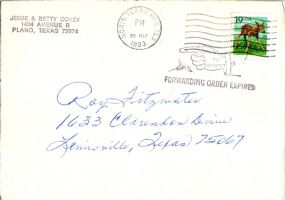 JESSE & BETTY COVEY
1404 AVENUE R
PLANO, TEXAS 75074
PM
1993
19
FORWARDING ORDER EXPIRED
Roy Fitzwater
1633 Clarendon Drive
Lewisville, Texas 75067